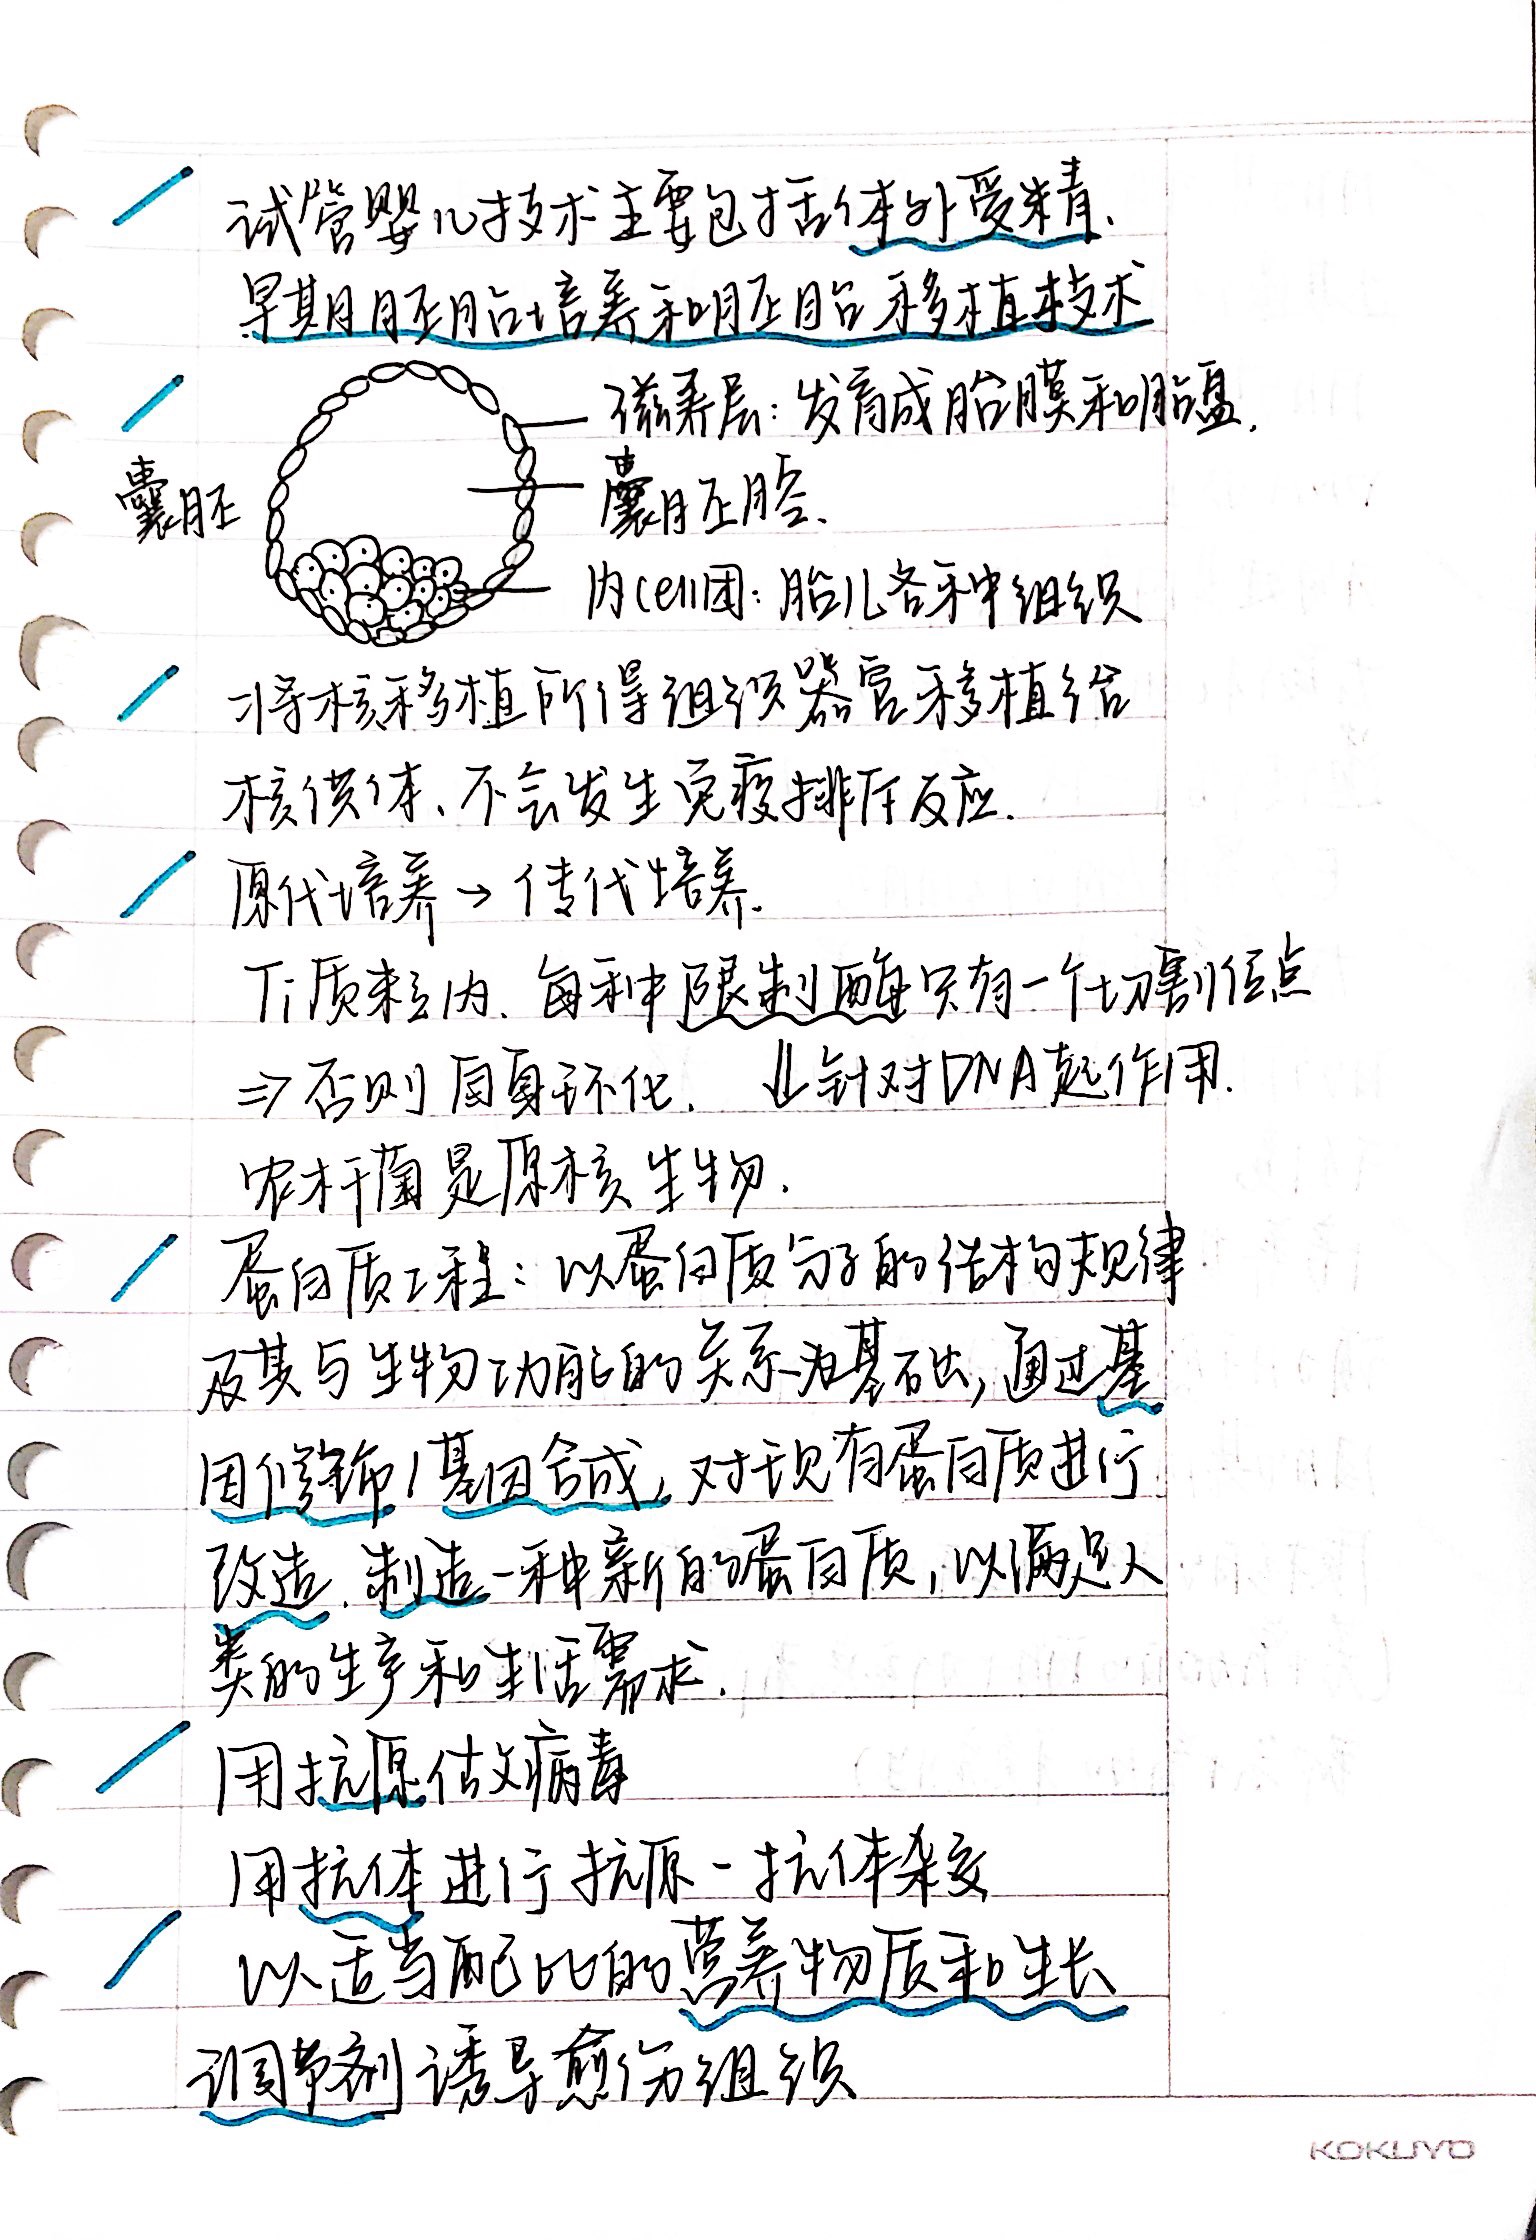 试管婴儿技术主要包括体外受精、
早期胚胎培养和胚胎移植技术
滋养层：发育成胎膜和胎盘.
囊胚
囊胚腔.
内cell团：胎儿各种组织
将核移植所得组织器官移植给
核供体、不会发生免疫排斥反应.
原代培养→传代培养.
Ti质粒内、每种限制酶只有一个切割位点
⇒否则自身环化. ⇓针对DNA起作用.
农杆菌是原核生物.
蛋白质工程：以蛋白质分子的结构规律
及其与生物功能的关系为基础，通过基
因修饰/基因合成，对现有蛋白质进行
改造、制造一种新的蛋白质，以满足人
类的生产和生活需求.
用抗原估效病毒
用抗体进行抗原-抗体杂交
以适当配比的营养物质和生长
调节剂诱导愈伤组织
KOKUYO